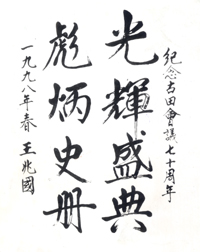 纪念古田會議七十周年
光輝盛典
彪炳史册
一九九八年春 王兆國